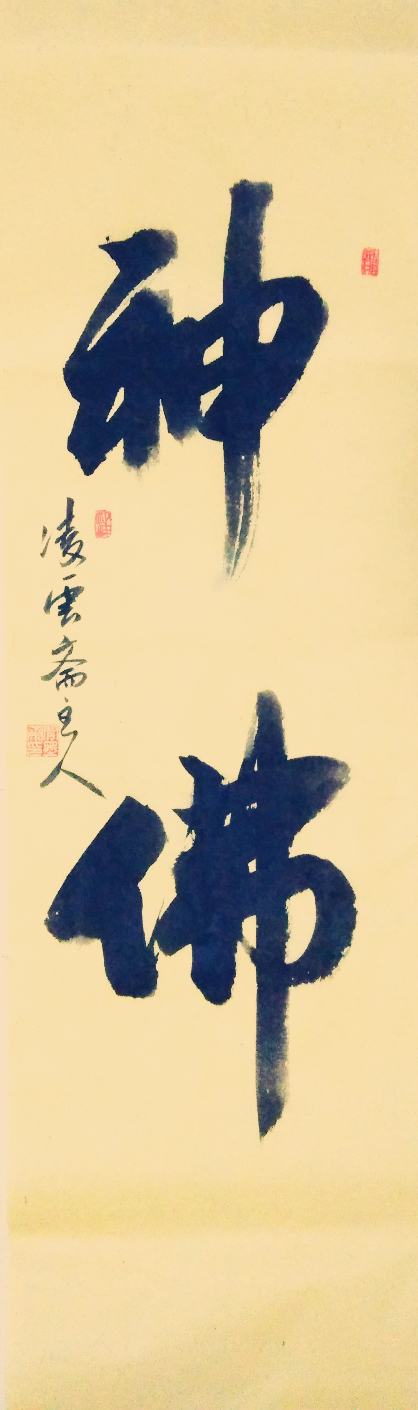 神佛
凌雲斎主人